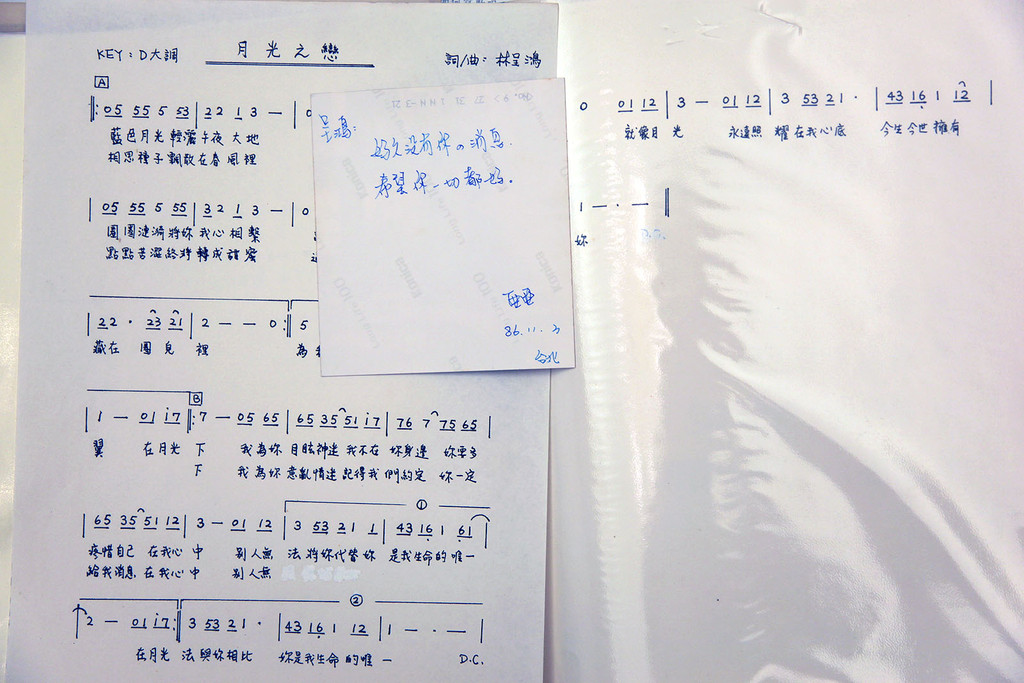 KEY：D大調
月光之戀
詞/曲：林呈鴻
A
05 55 5 53 | 2 2 1 3 — | 0
藍色月光輕灑午夜大地
相思種子飄散在春風裡
05 55 5 55 | 3 2 1 3 — | 0
團團漣漪將妳我心相繫
點點苦澀終將轉成甜蜜
22 · 23 21 | 2 — — 0 :|| 5
藏在 園兒裡 為我
1 — 01 i7 ||: 7 — 05 65 | 65 35 51 i7 | 76 7 75 65 |
B
翼 在月光下 我為妳目眩神迷 我不在妳身邊 妳要多
下 我為妳意亂情迷 記得我們約定 妳一定
65 35 51 12 | 3 — 01 12 | 3 53 21 1 | 43 16 1 61 |
①
疼惜自己 在我心中 別人無法將妳代替 妳是我生命的唯一
給我消息 在我心中 別人無
2 — 01 i7 :|| 3 53 21 · | 43 16 1 12 | 1 — · — |
②
在月光 法與妳相比 妳是我生命的唯一 D.C.
呈鴻：
好久没有你の消息.
希望你一切都好.
86.11.3
台北
Konica
0 01 12 | 3 — 01 12 | 3 53 21 · | 43 16 1 12 |
就像月光 永遠照耀在我心底 今生今世擁有
1 — · — ||
妳 D.C.